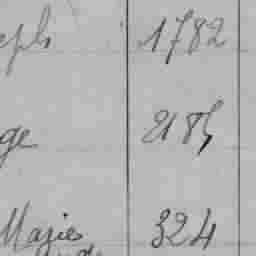 eph 1782
ge 2185
Marie 324